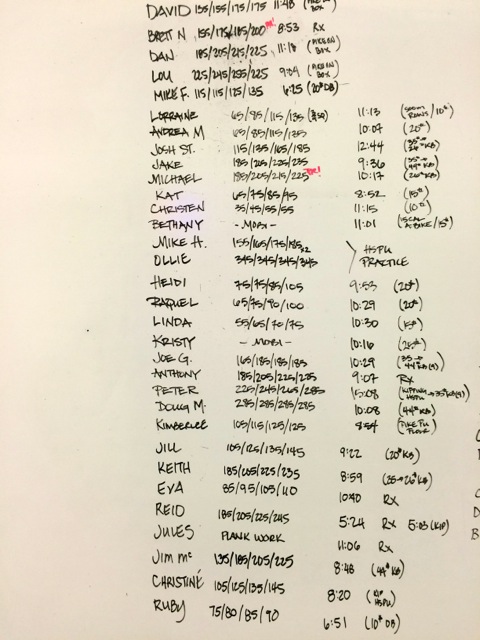 DAVID 135/155/175/175 11:48 (PIKE ON BOX)
BRETT N 155/175/185/200 PR! 8:53 RX
DAN 185/205/215/225 11:18 (PIKE ON BOX)
LOU 225/245/255/225 9:04 (PIKE ON BOX)
MIKE F. 115/115/125/135 6:25 (20# DB)
LORRAINE 65/85/115/135 11:13
ANDREA M 65/85/115/135 10:07 (20#)
JOSH ST. 115/135/165/185 12:44
JAKE 185/205/225/235 9:36
MICHAEL 185/205/215/225 PR! 10:17 (26# KB)
KAT 65/75/85/95 8:52 (15#)
CHRISTEN 35/45/55/55 11:15 (10#)
BETHANY - MOBI - 11:01
MIKE H. 155/165/175/185 x2
OLLIE 345/345/345/345 HSPU PRACTICE
HEIDI 75/75/85/105 9:53 (20#)
RAQUEL 65/75/90/100 10:29 (20#)
LINDA 55/65/70/75 10:30 (15#)
KRISTY - MOBI - 10:16 (25#)
JOE G. 165/185/185/185 10:29
ANTHONY 185/205/225/225 9:07 RX
PETER 225/245/265/285 15:08
DOUG M. 285/285/285/285 10:08 (44# KB)
KIMBERLEE 105/115/125/125 8:54 (PIKE PU FLOOR)
JILL 105/125/135/145 9:22 (20# KB)
KEITH 185/205/225/235 8:59 (25→26# KB)
EVA 85/95/105/110 10:40 RX
REID 185/205/225/245 5:24 RX 5:03 (KIP)
JULES PLANK WORK 11:06 RX
JIM MC 135/185/205/225 8:48 (44# KB)
CHRISTINE 105/125/135/145 8:20 HSPU
RUBY 75/80/85/90 6:51 (10# DB)